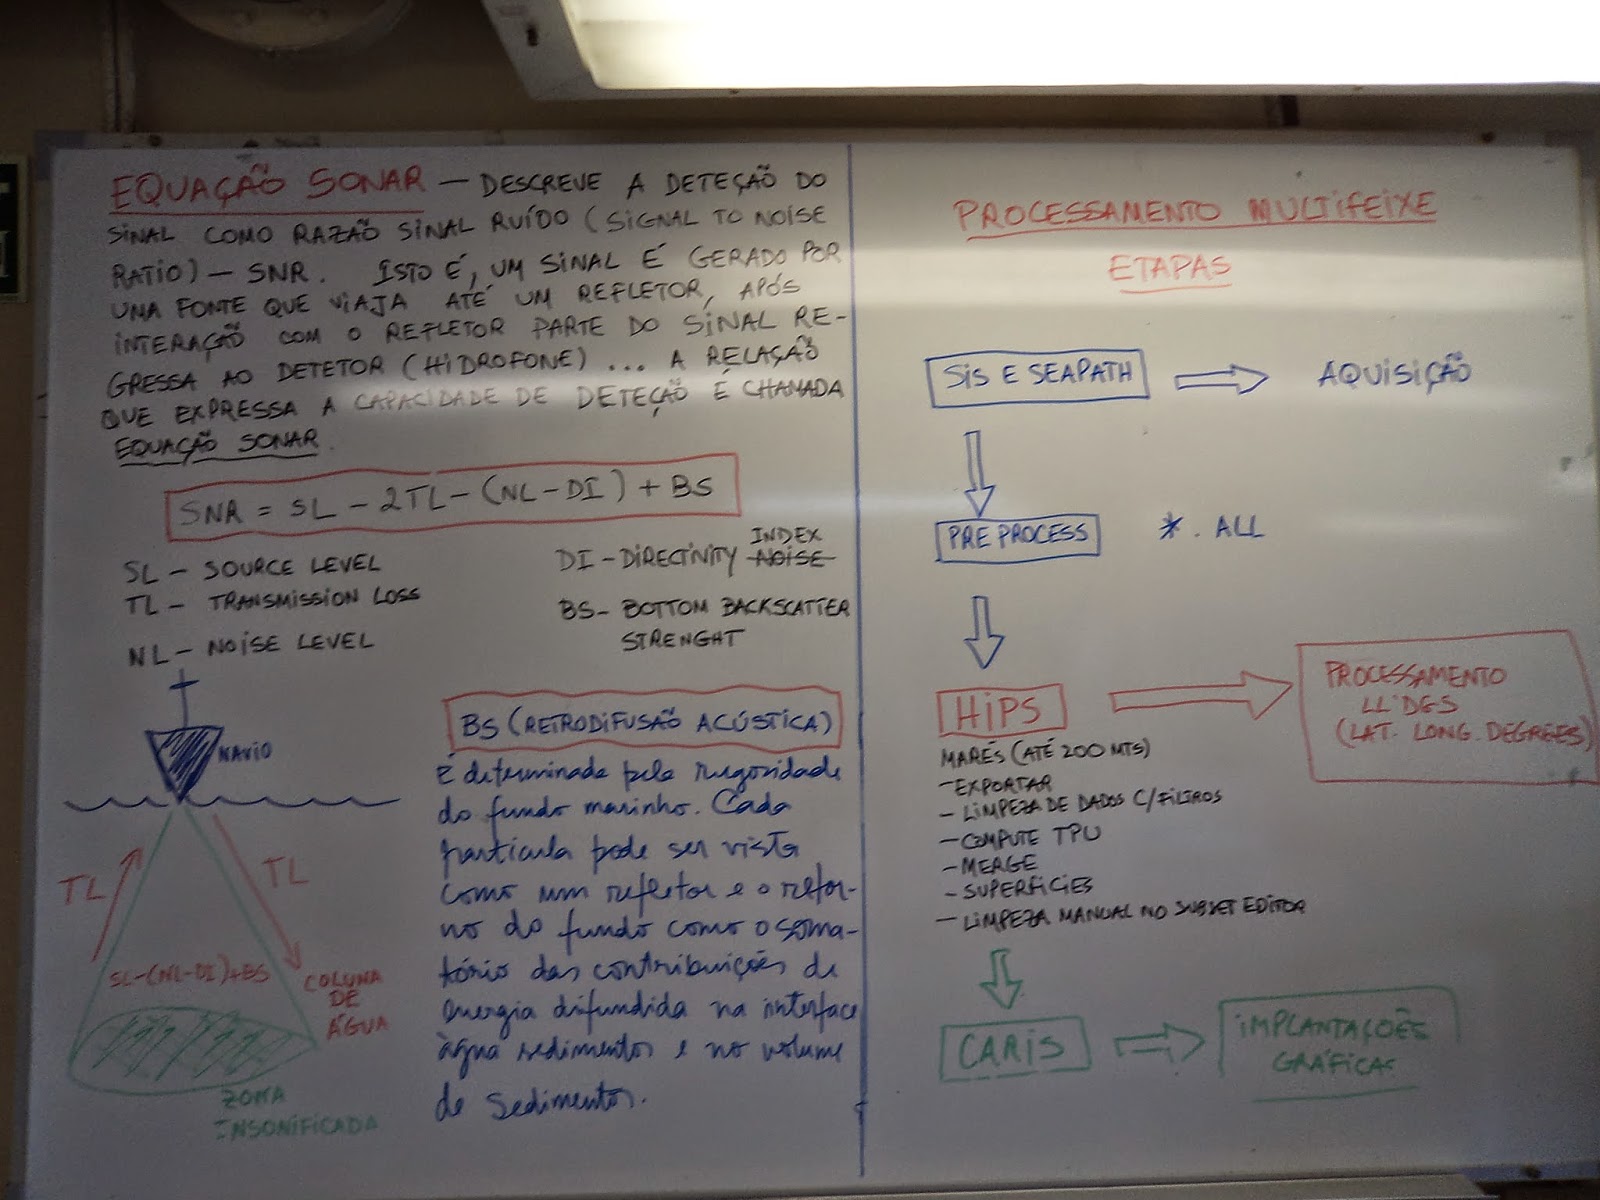 EQUAÇÃO SONAR — DESCREVE A DETEÇÃO DO
SINAL COMO RAZÃO SINAL RUÍDO (SIGNAL TO NOISE
RATIO) — SNR. ISTO É, UM SINAL É GERADO POR
UMA FONTE QUE VIAJA ATÉ UM REFLETOR, APÓS
INTERAÇÃO COM O REFLETOR PARTE DO SINAL RE-
GRESSA AO DETETOR (HIDROFONE) ... A RELAÇÃO
QUE EXPRESSA A CAPACIDADE DE DETEÇÃO É CHAMADA
EQUAÇÃO SONAR.
SNR = SL - 2TL - (NL - DI) + BS
SL - SOURCE LEVEL
TL - TRANSMISSION LOSS
NL - NOISE LEVEL
INDEX
DI - DIRECTINITY NOISE
BS - BOTTOM BACKSCATTER
STRENGHT
NAVIO
TL
TL
SL-(NL-DI)+BS
COLUNA
DE
ÁGUA
ZONA
INSONIFICADA
BS (RETRODIFUSÃO ACÚSTICA)
É determinada pela rugosidade
do fundo marinho. Cada
particula pode ser vista
como um refletor e o retor-
no do fundo como o soma-
tório das contribuições de
energia difundida na interface
àgua sedimentos e no volume
de sedimentos.
PROCESSAMENTO MULTIFEIXE
ETAPAS
SIS E SEAPATH
AQUISIÇÃO
PRE PROCESS
*. ALL
HIPS
PROCESSAMENTO
LLDGS
(LAT. LONG. DEGREES)
MARÉS (ATÉ 200 MTS)
- EXPORTAR
- LIMPEZA DE DADOS C/FILTROS
- COMPUTE TPU
- MERGE
- SUPERFICIES
- LIMPEZA MANUAL NO SUBSET EDITOR
CARIS
IMPLANTAÇÕES
GRÁFICAS